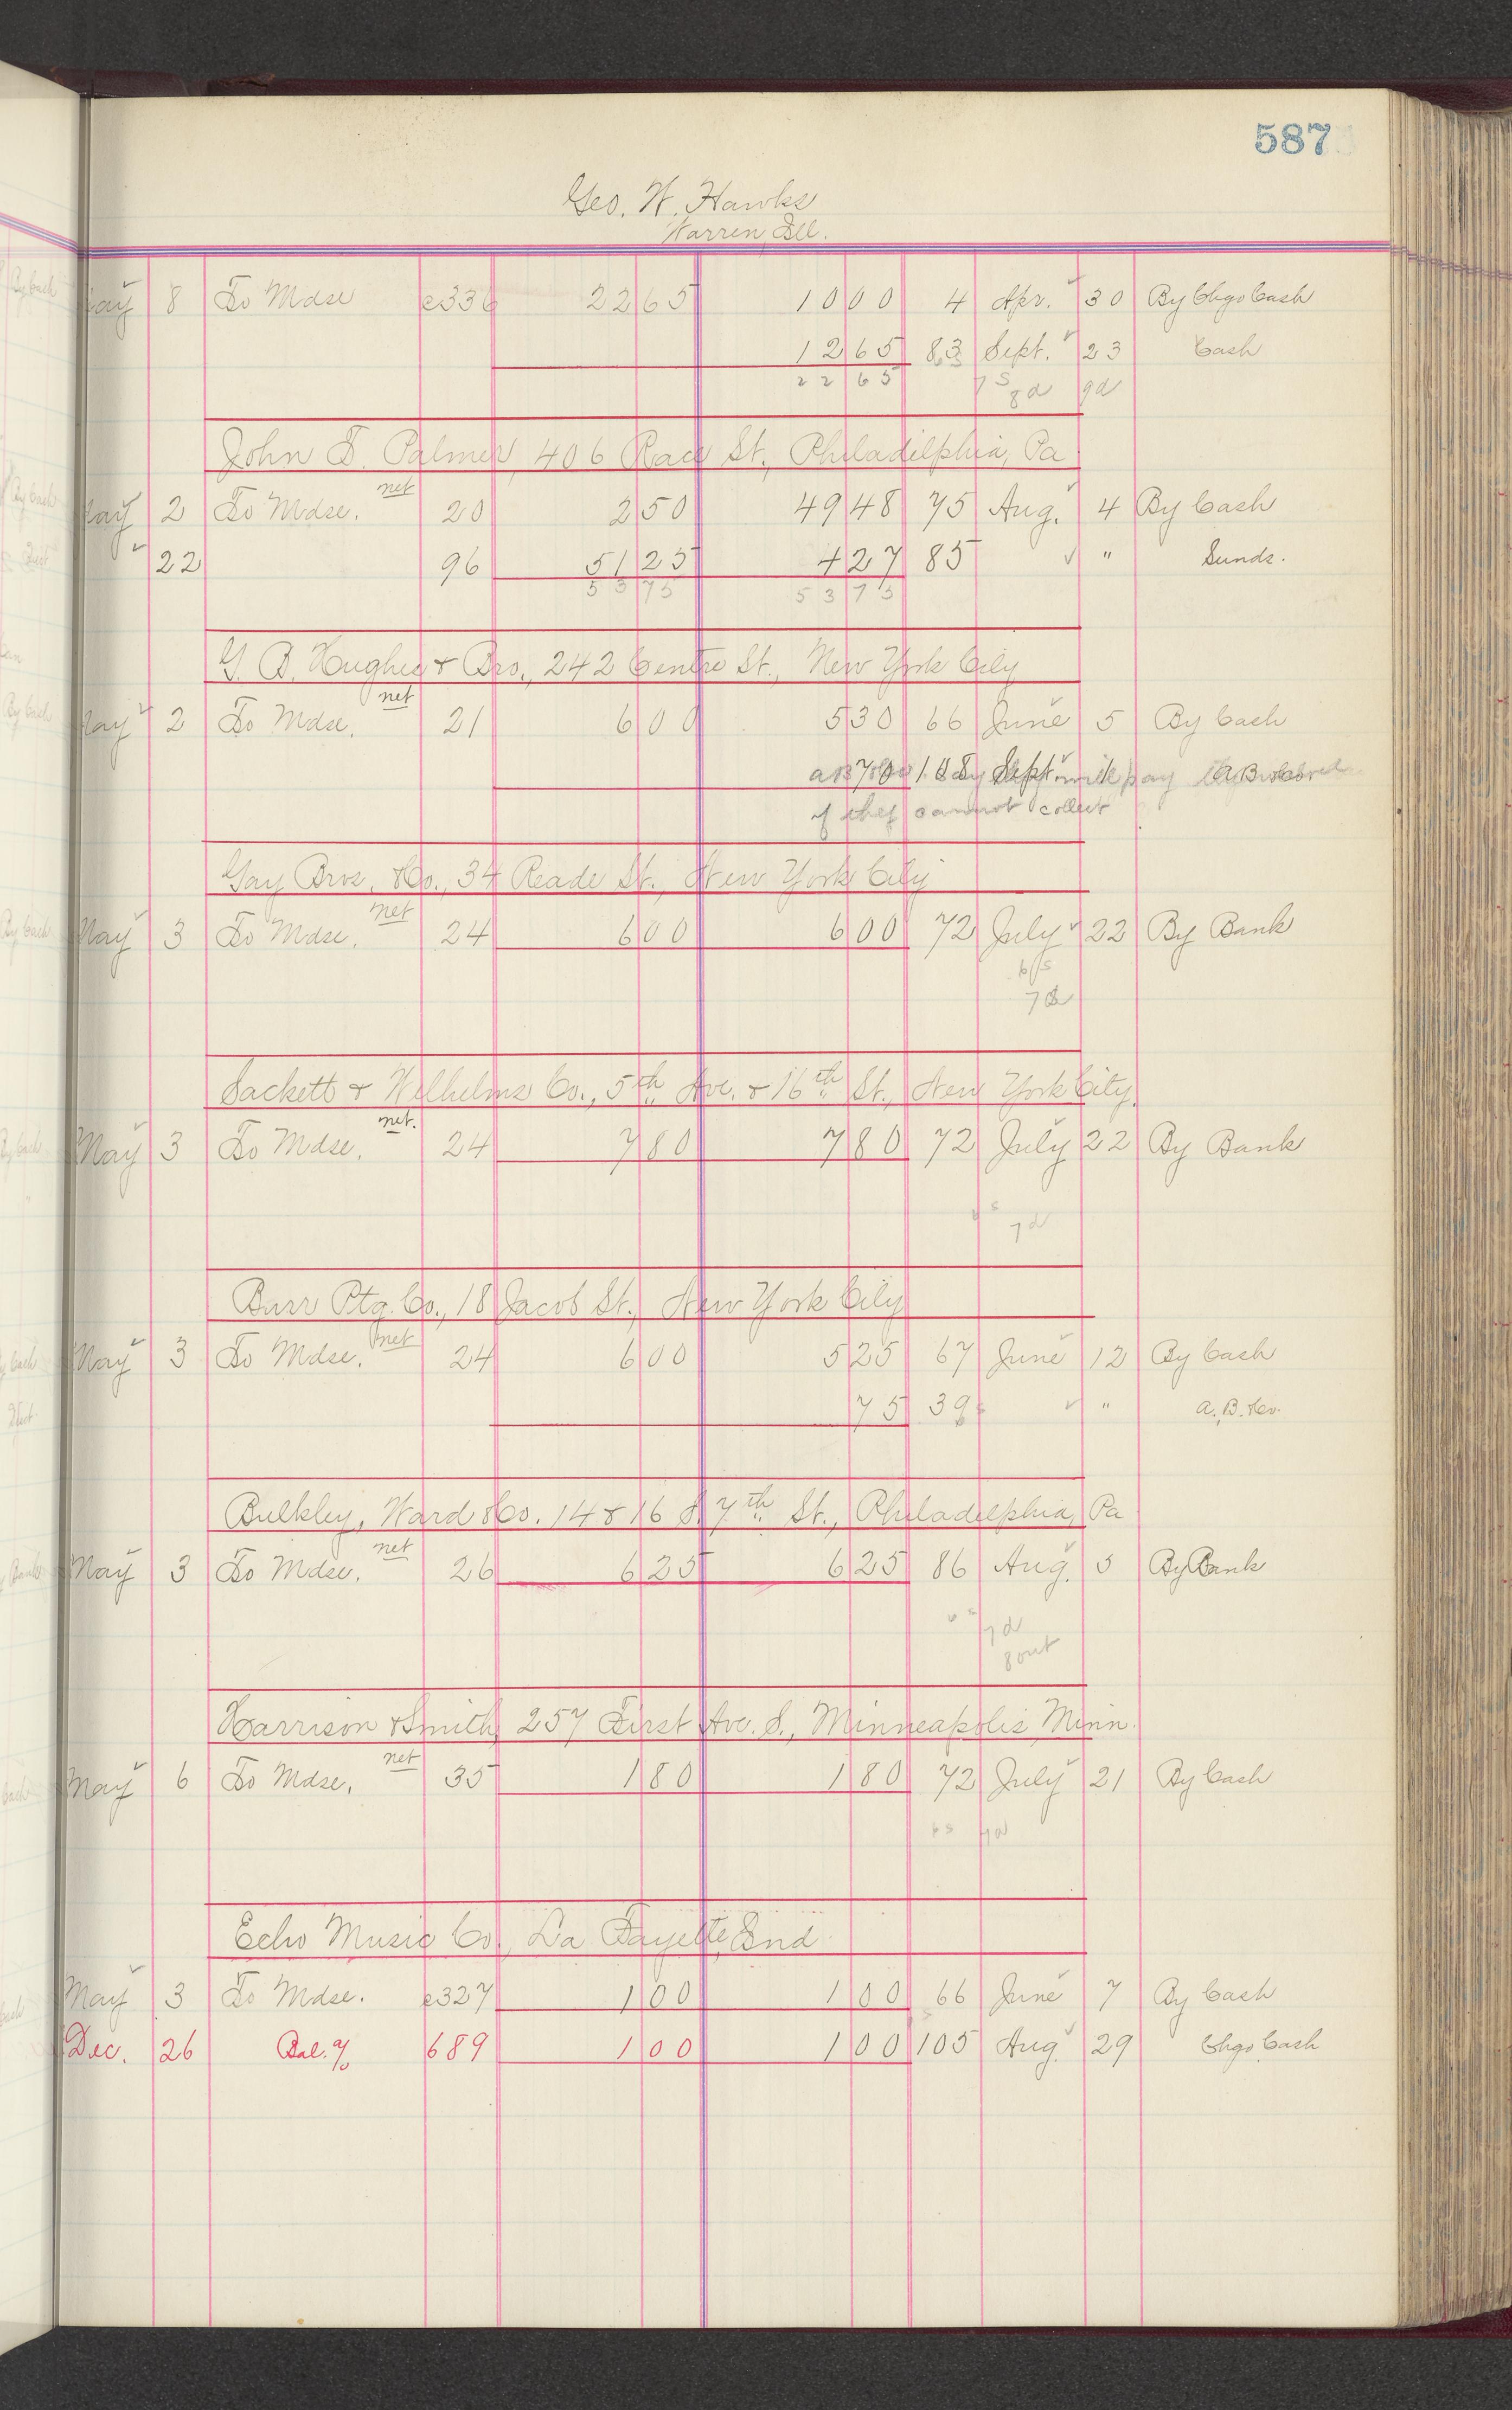 587
Geo. W. Hawks
Warren, Ill.
May 8 To Mdse c336 22 65 10 00 4 Apr. 30 By Chgo Cash
12 65 83 Sept. 23 Cash
22 65 7s 8d 9d
John T. Palmer, 406 Race St., Philadelphia, Pa
May 2 To Mdse. net 20 2 50 49 48 75 Aug. 4 By Cash
22 96 51 25 4 27 85 " Sunds.
53 75 53 75
G. B. Hughes & Bro., 242 Centre St., New York City
May 2 To Mdse. net 21 6 00 5 30 66 June 5 By Cash
70 108 Sept. 1 pay
if they cannot collect
Gay Bros. & Co., 34 Reade St., New York City
May 3 To Mdse. net 24 6 00 6 00 72 July 22 By Bank
6/s
7d
Sackett & Wilhelms Co., 5th Ave. & 16th St., New York City.
May 3 To Mdse. net. 24 7 80 7 80 72 July 22 By Bank
s 7d
Burr Ptg. Co., 18 Jacob St., New York City
May 3 To Mdse. net 24 6 00 5 25 67 June 12 By Cash
75 39 " A. B. Rev.
Bulkley, Ward & Co. 14 & 16 S. 7th St., Philadelphia, Pa
May 3 To Mdse. net 26 6 25 6 25 86 Aug. 5 By Bank
6s 7d
8 out
Harrison & Smith, 257 First Ave. S., Minneapolis, Minn.
May 6 To Mdse. net 35 1 80 1 80 72 July 21 By Cash
6s 7d
Echo Music Co., La Fayette, Ind.
May 3 To Mdse. c327 1 00 1 00 66 June 7 By Cash
Dec. 26 Bal. % 689 1 00 1 00 105 Aug 29 Chgo Cash